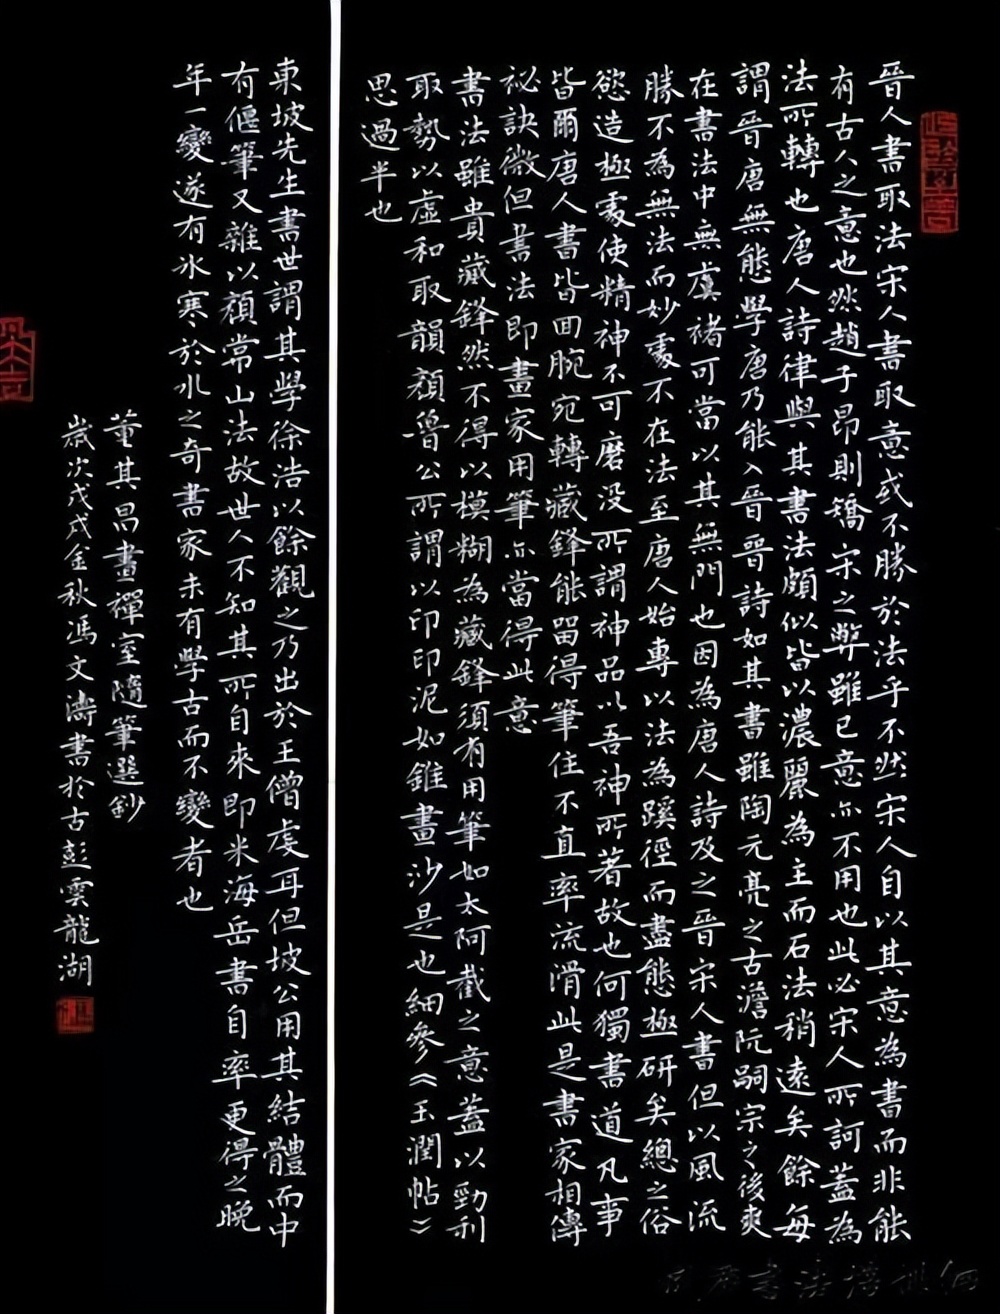 晉人書取法宋人書取意或不勝於法乎不然宋人自以其意為書而非能
有古人之意也然趙子昂則矯宋之弊雖已意亦不用也此必宋人所訶蓋為
法所轉也唐人詩律與其書法頗似皆以濃麗為主而石法稍遠矣餘每
謂晉唐無態學唐乃能入晉晉詩如其書雖陶元亮之古澹阮嗣宗之後爽
在書法中無虞褚可當以其無門也因為唐人詩及之晉宋人書但以風流
勝不為無法而妙處不在法至唐人始專以法為蹊徑而盡態極研矣總之俗
慾造極處使精神不可磨没所謂神品以吾神所著故也何獨書道凡事
皆爾唐人書皆回腕宛轉藏鋒能留得筆住不直率流滑此是書家相傳
祕訣微但書法即畫家用筆亦當得此意
書法雖貴藏鋒然不得以模糊為藏鋒須有用筆如太阿截之意蓋以勁利
取勢以虛和取韻顏魯公所謂以印印泥如錐畫沙是也細參《玉潤帖》
思過半也
東坡先生書世謂其學徐浩以餘觀之乃出於王僧虔耳但坡公用其結體而中
有偃筆又雜以顏常山法故世人不知其所自來即米海岳書自率更得之晚
年一變遂有冰寒於水之奇書家未有學古而不變者也
董其昌畫禪室隨筆選鈔
歲次戊戌金秋馮文濤書於古彭雲龍湖